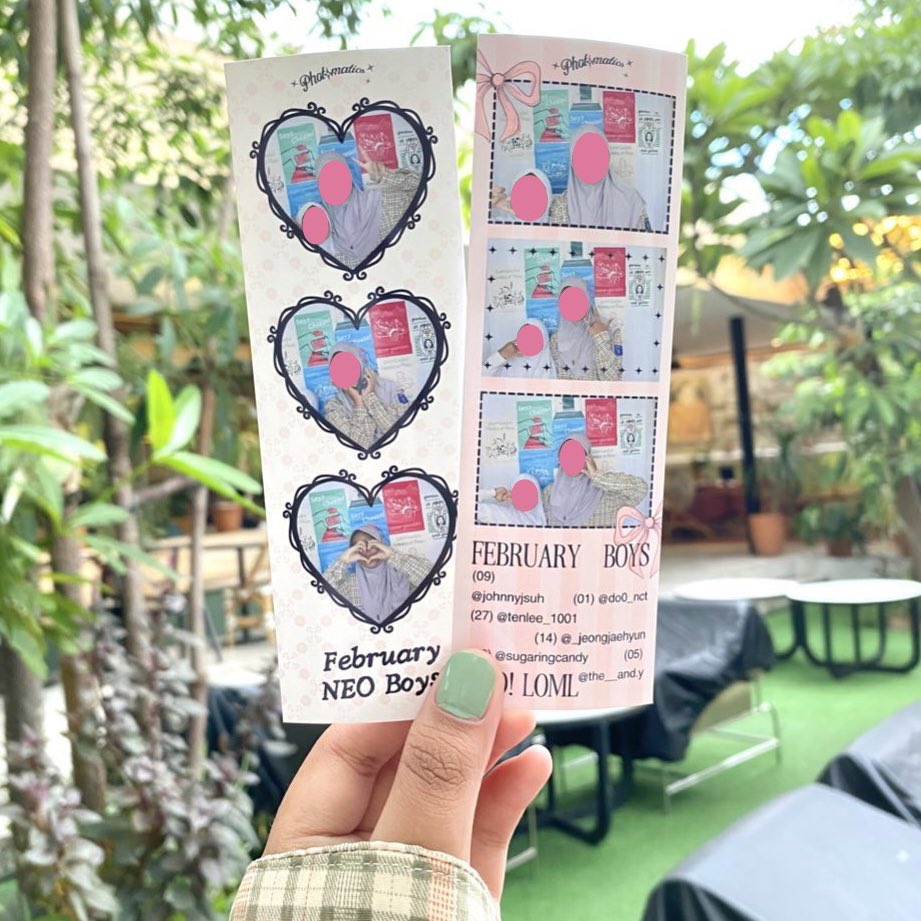 Photomatics
February
NEO Boys
Photomatics
FEBRUARY BOYS
(09)
@johnnyjsuh (01) @do0_nct
(27) @tenlee_1001
(14) @_jeongjaehyun
@sugaringcandy (05)
@the__and.y
! LOML